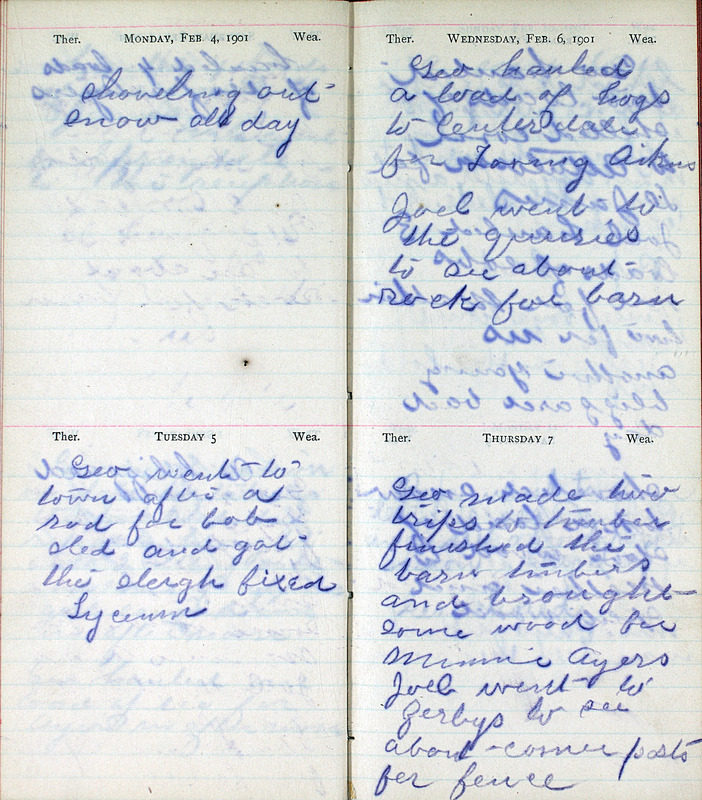 Ther. MONDAY, FEB. 4, 1901 Wea.
Shoveling out
snow all day
Ther. TUESDAY 5 Wea.
Geo went to
town after a
rod for bob
sled and got
the sleigh fixed
Lyceum
Ther. WEDNESDAY, FEB. 6, 1901 Wea.
Geo hauled
a load of hogs
to Centerdale
for Loring Aikins
Joel went to
the quuries
to see about
rock for barn
Ther. THURSDAY 7 Wea.
Geo made two
trips to timber
finished the
barn timbers
and brought
some wood for
Minnie Ayers
Joel went to
Zerbys to see
about corner posts
for fence